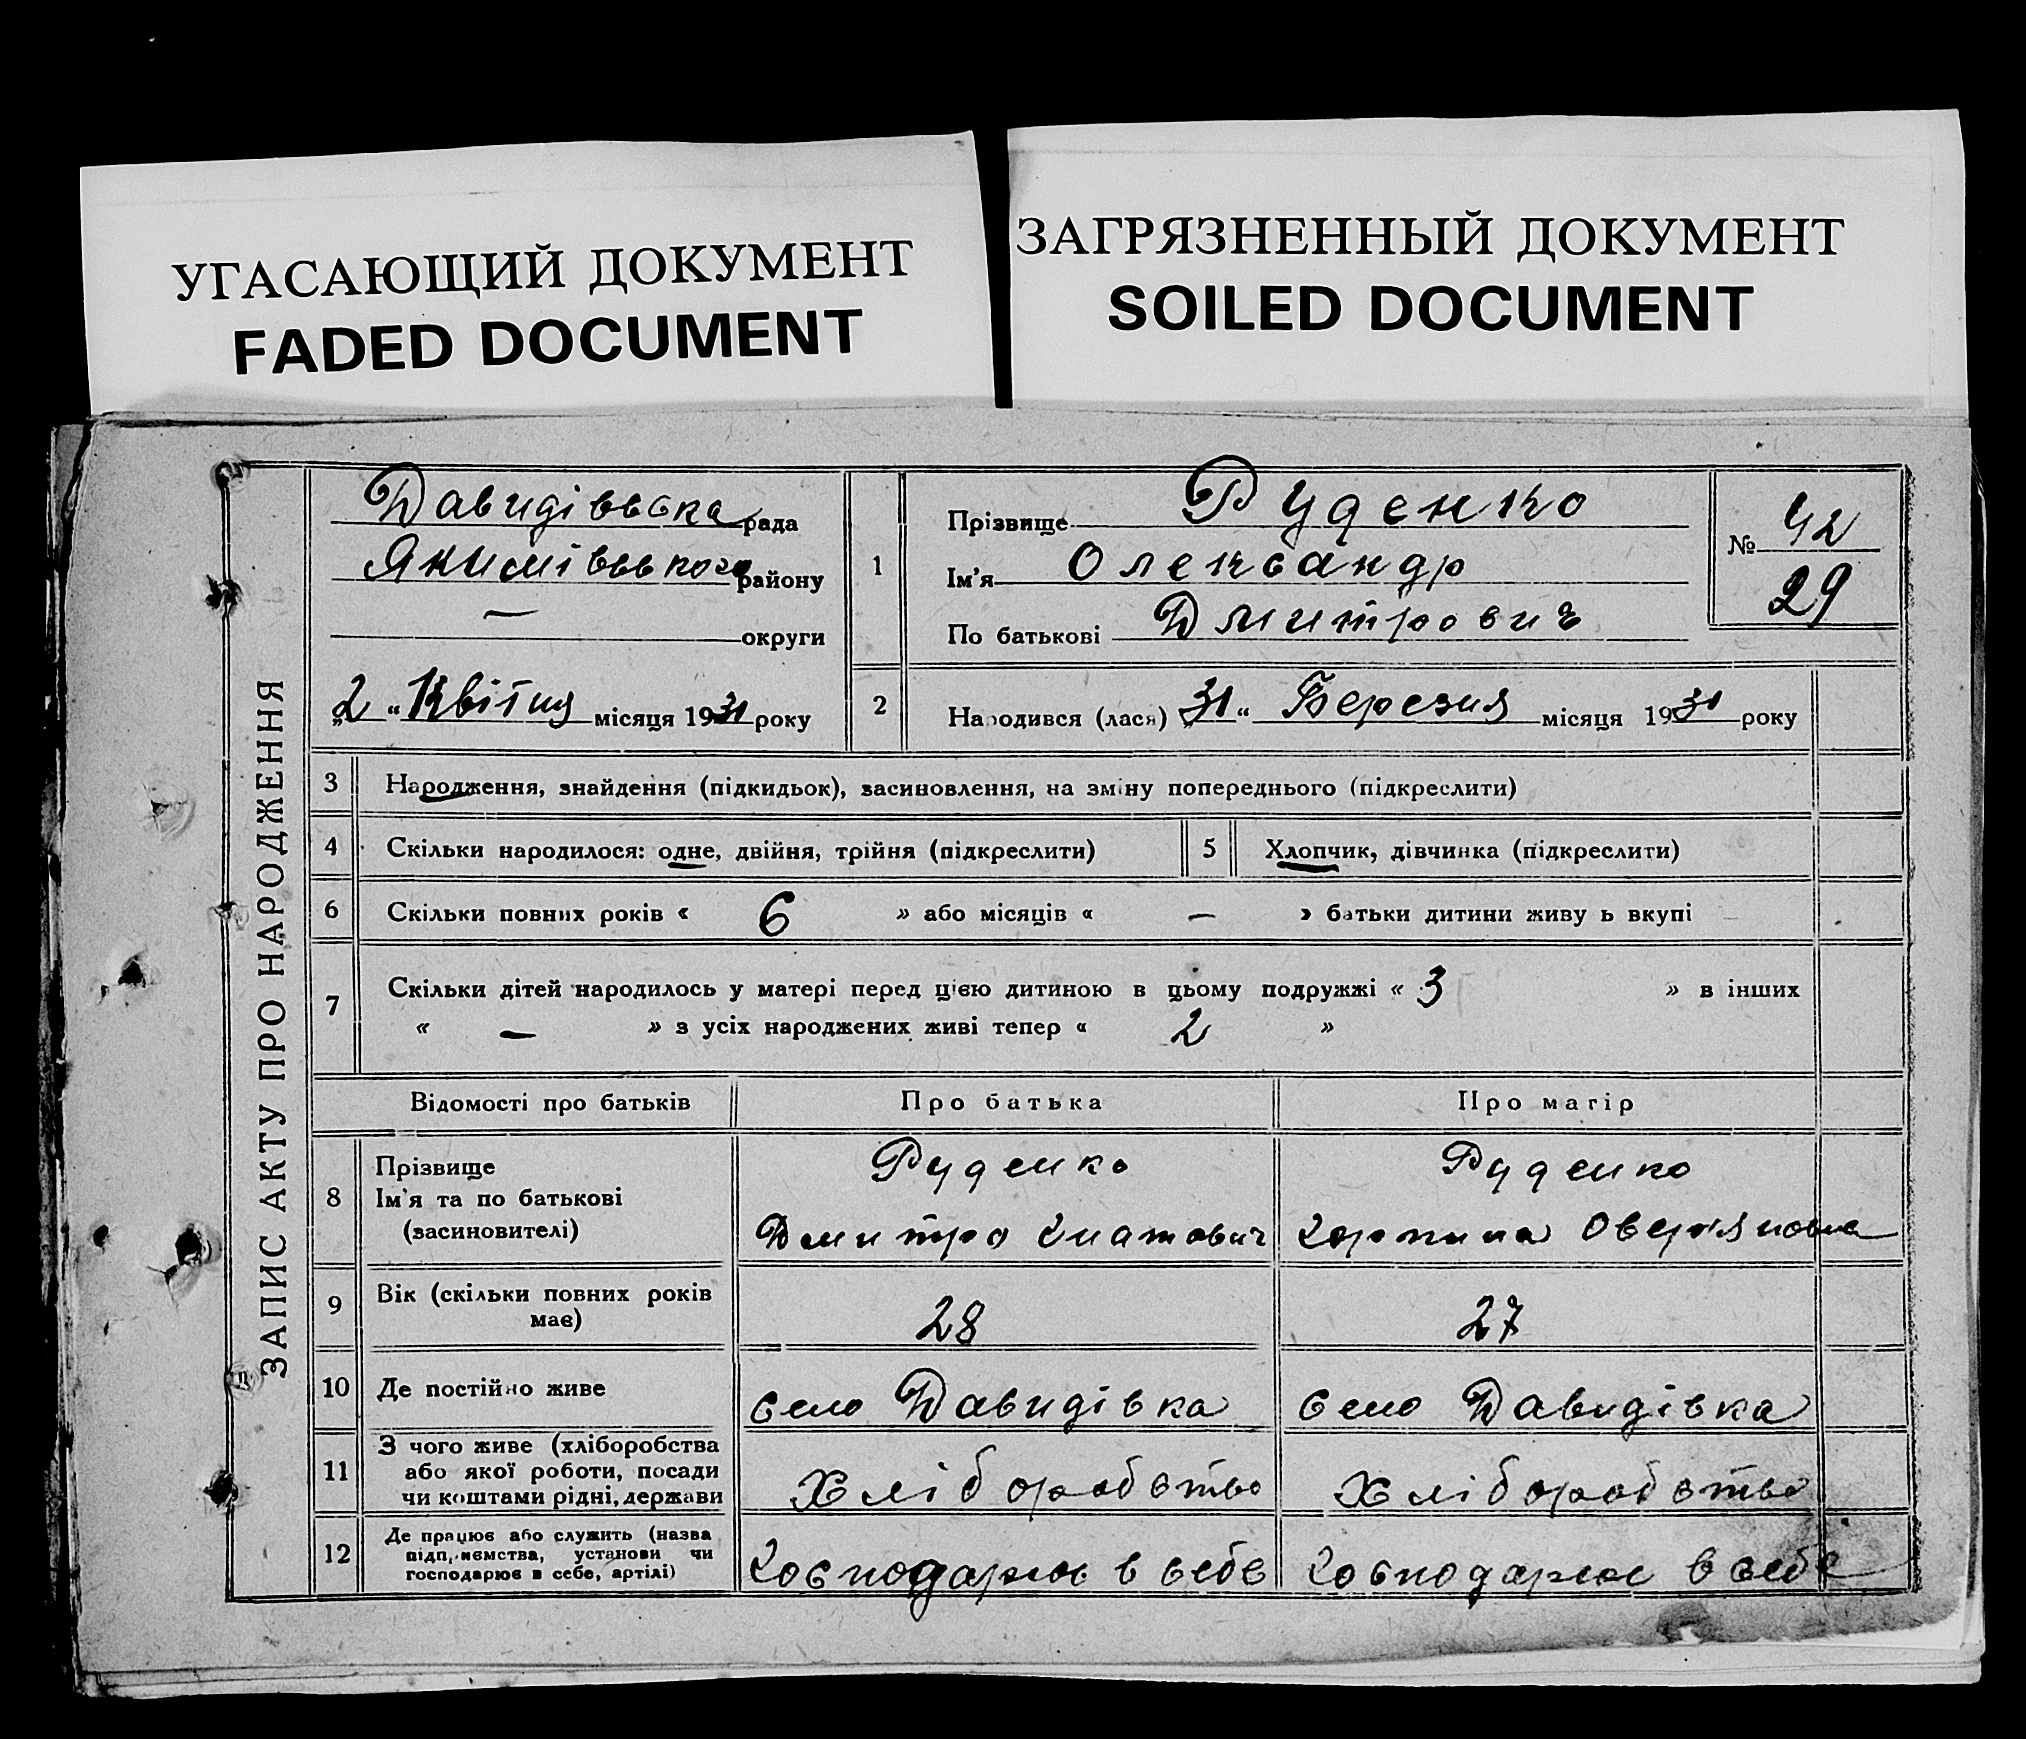 УГАСАЮЩИЙ ДОКУМЕНТ
FADED DOCUMENT
ЗАГРЯЗНЕННЫЙ ДОКУМЕНТ
SOILED DOCUMENT
ЗАПИС АКТУ ПРО НАРОДЖЕННЯ
Давидівська рада
Якимівського району
— округи
„2“ Квітня місяця 1931 року
1
Прізвище Руденко
Ім'я Олександр
По батькові Дмитрович
№ 42
29
2 Народився (лася) „31“ Березня місяця 1931 року
3 Народження, знайдення (підкидьок), засиновлення, на зміну попереднього (підкреслити)
4 Скільки народилося: одне, двійня, трійня (підкреслити)
5 Хлопчик, дівчинка (підкреслити)
6 Скільки повних років « 6 » або місяців « — » батьки дитини живуть вкупі
7 Скільки дітей народилось у матері перед цією дитиною в цьому подружжі « 3 » в інших
« — » з усіх народжених живі тепер « 2 »
Відомості про батьків Про батька Про матір
8 Прізвище Руденко Руденко
Ім'я та по батькові
(засиновителі) Дмитро Гнатович Оверяновна
9 Вік (скільки повних років
має) 28 27
10 Де постійно живе село Давидівка село Давидівка
11 З чого живе (хліборобства
або якої роботи, посади
чи коштами рідні, держави Хліборобство Хліборобство
12 Де працює або служить (назва
підприємства, установи чи
господарює в себе, артілі) Господарює в себе Господарює в себе